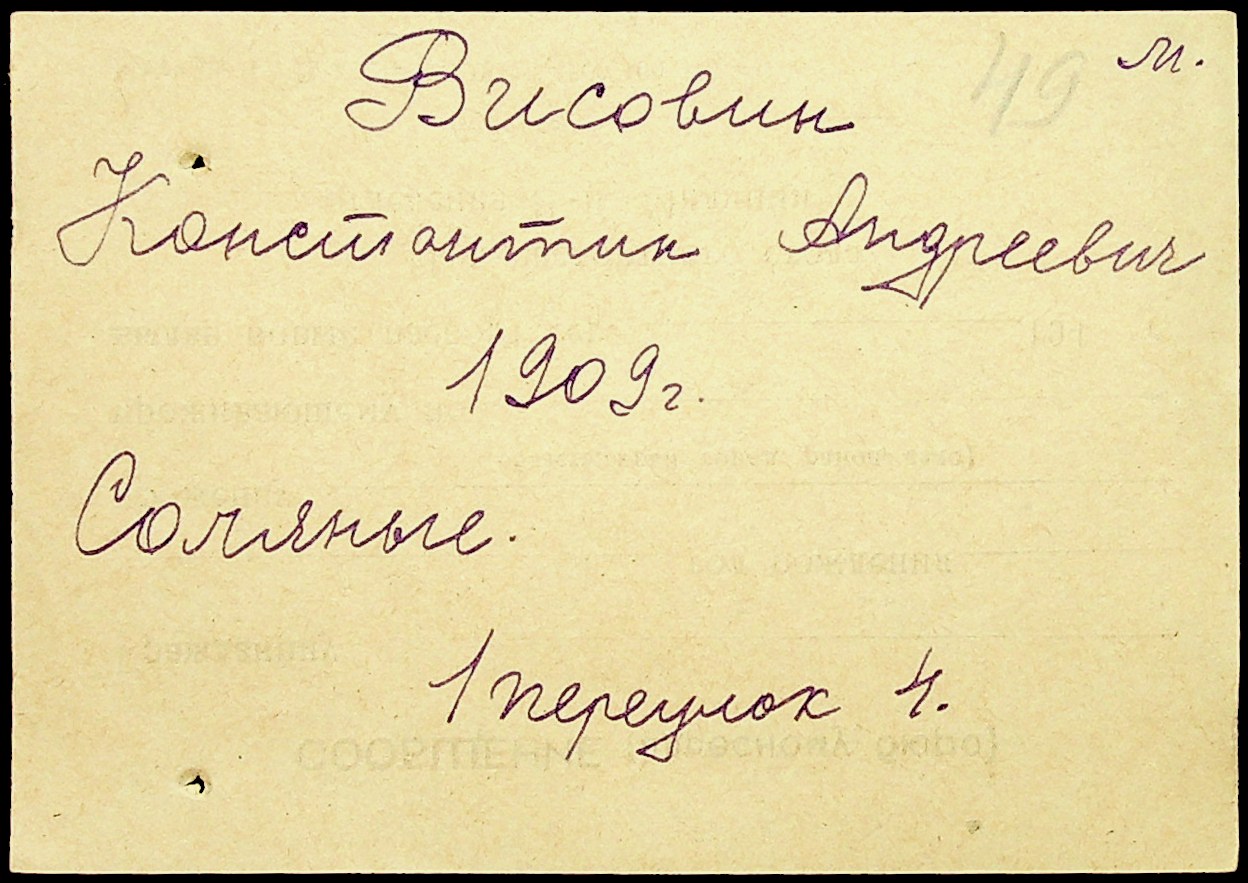 49 м.
Висовин
Константин Андреевич
1909г.
Соляные.
1 переулок 4.